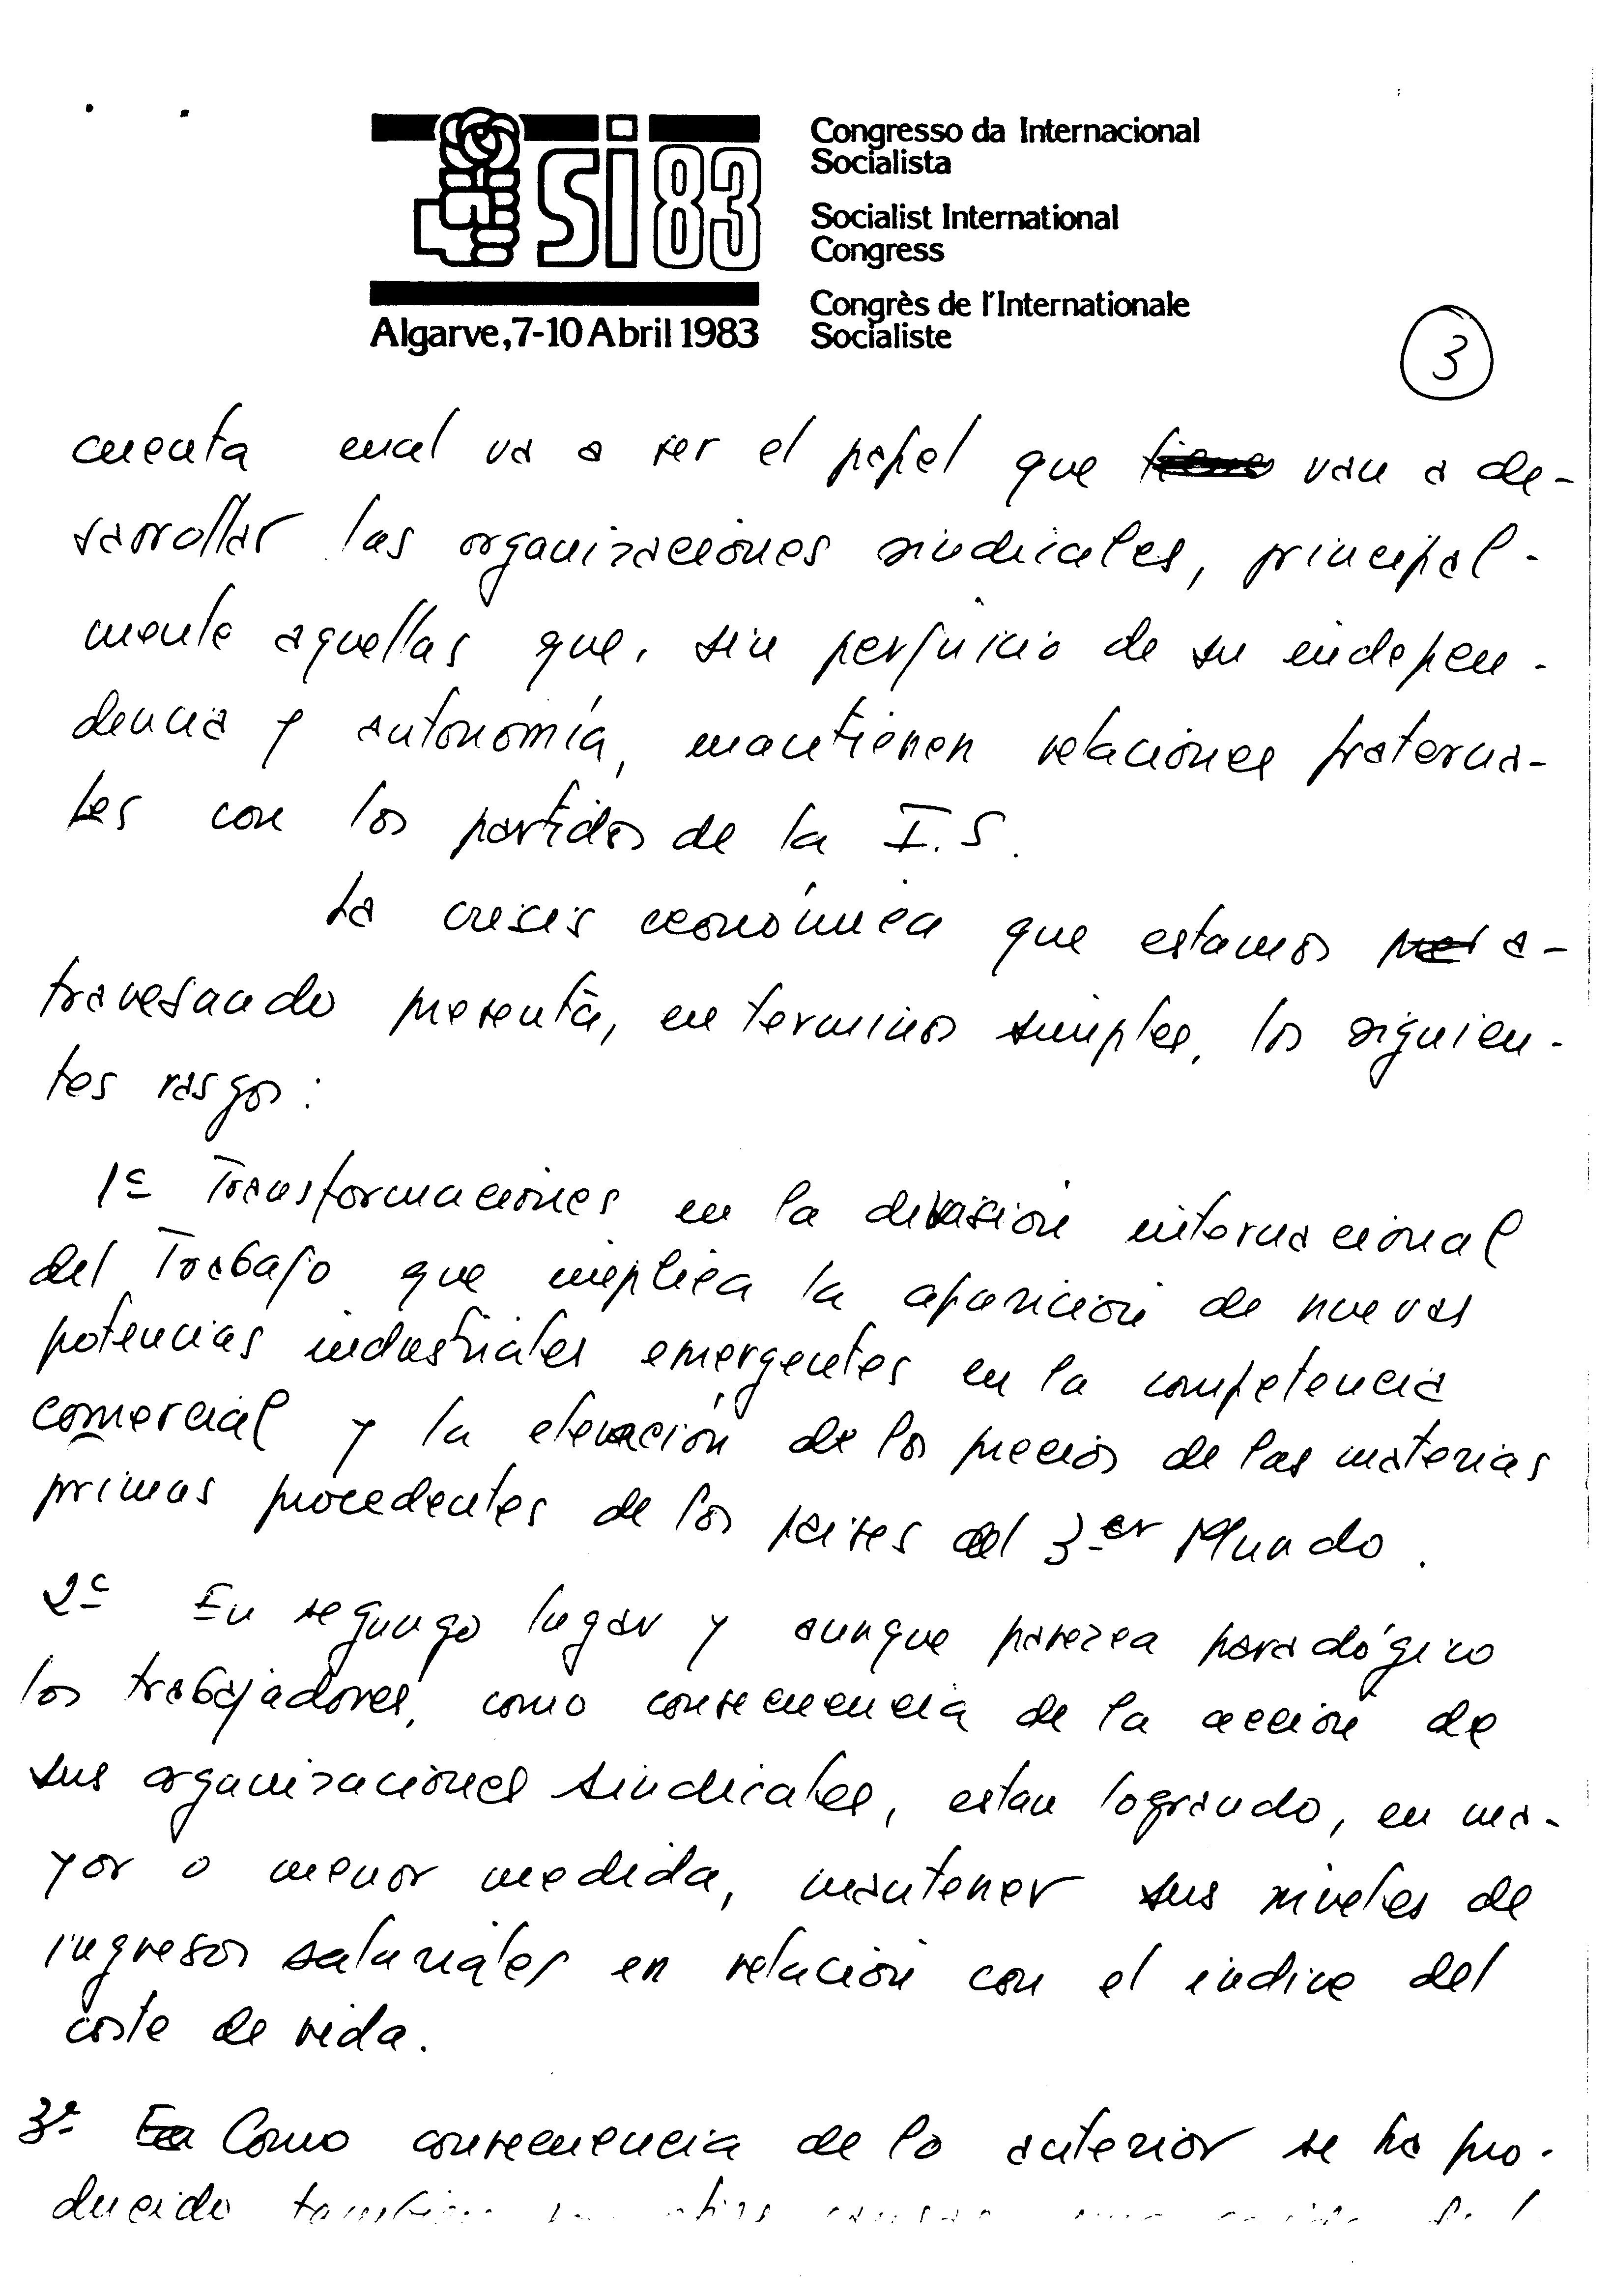 si 83
Algarve, 7-10 Abril 1983
Congresso da Internacional
Socialista
Socialist International
Congress
Congrès de l'Internationale
Socialiste
3
cuenta cual va a ser el papel que van a de-
sarrollar las organizaciones sindicales, principal-
mente aquellas que, sin perjuicio de su indepen-
dencia y autonomía, mantienen relaciones fraterna-
les con los partidos de la I.S.
La crisis económica que estamos a-
travesando presenta, en terminos simples, los siguien-
tes rasgos:
1º Transformaciones en la division internacional
del Trabajo que implica la aparición de nuevas
potencias industriales emergentes en la competencia
comercial y la elevación de los precios de las materias
primas procedentes de los paises del 3er Mundo.
2º En segungo lugar y aunque parezca paradógico
los trabajadores, como consecuencia de la acción de
sus organizaciones sindicales, estan logrando, en ma-
yor o menor medida, mantener sus niveles de
ingresos salariales en relación con el indice del
coste de vida.
3º En Como consecuencia de lo anterior se ha pro-
ducido